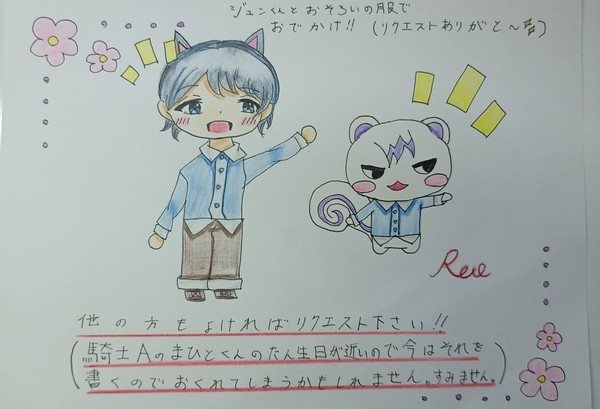 ジュンくんとおそろいの服で
おでかけ!! (リクエストありがと〜✨)
他の方もよければリクエスト下さい!!
(騎士Aのまひとくんのたん生日が近いので今はそれを
書くのでおくれてしまうかもしれません。すみません。)